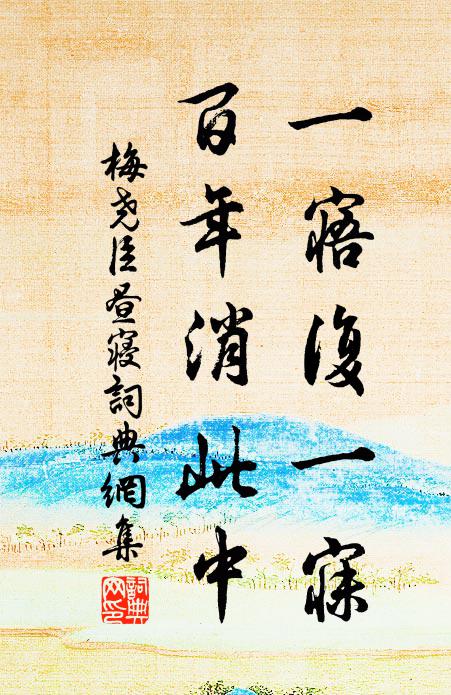 一寤復一寐
百年消此中
梅尧臣昼寝詞典網集